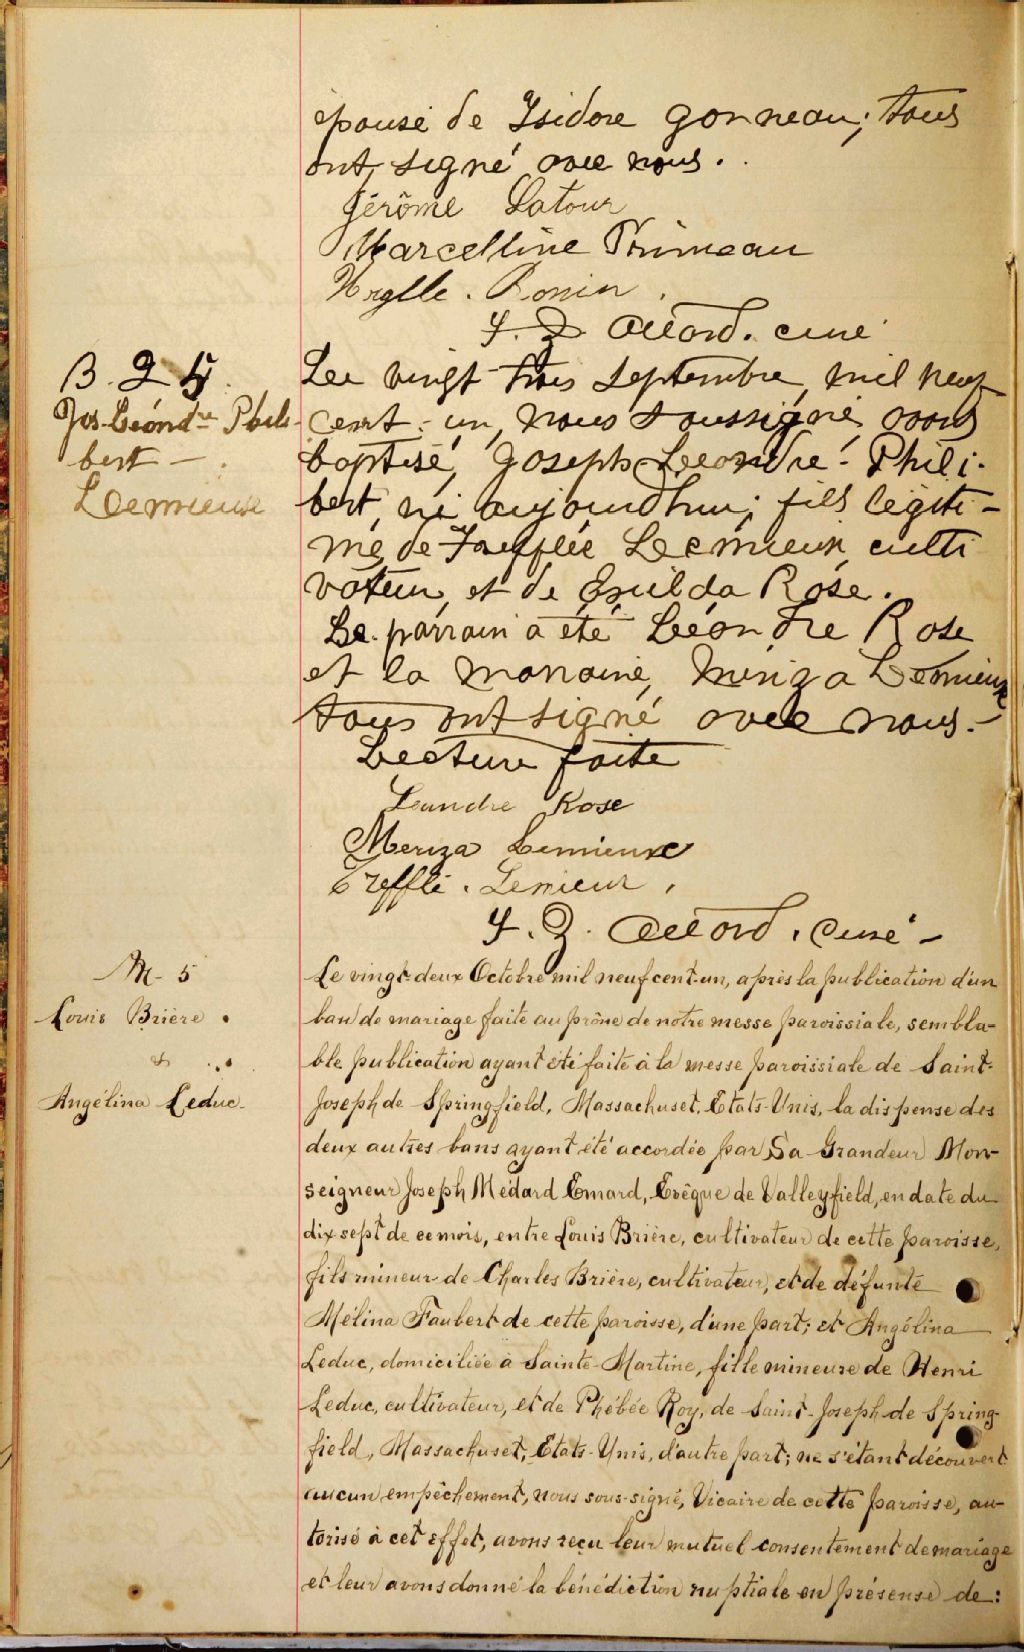 épouse de Isidore Gonneau; tous
ont signé avec nous.
Jérôme Latour
Marcelline Primeau
F. Z. Allord. curé
B. 25
Jos. Léandre Phili-
bert —
Lemieux
Le vingt trois septembre, mil neuf
cent-un, nous soussigné avons
baptisé, Joseph Léandre-Phili-
bert, né aujourd'hui; fils légiti-
me, de Treffléé Lemieux, culti
vateur, et de Exilda Rose.
Le parrain a été Léandre Rose
et la marraine, Meriza Lemieux
tous ont signé avec nous.-
Lecture faite
Leandre Rose
Meriza Lemieux
Trefflé. Lemieux.
F. Z. Allord. curé-
M- 5
Louis Brière.
&
Angélina Leduc.
Le vingt-deux Octobre mil neuf cent-un, après la publication d'un
ban de mariage faite au prône de notre messe paroissiale, sembla-
ble publication ayant été faite à la messe paroissiale de Saint-
Joseph de Springfield, Massachuset, Etats-Unis, la dispense des
deux autres bans ayant été accordée par Sa Grandeur Mon-
seigneur Joseph Médard Emard, Evêque de Valleyfield, en date du
dix sept de ce mois, entre Louis Brière, cultivateur de cette paroisse,
fils mineur de Charles Brière, cultivateur, et de défunte
Mélina Faubert de cette paroisse, d'une part; et Angélina
Leduc, domiciliée à Sainte-Martine, fille mineure de Henri
Leduc, cultivateur, et de Phébée Roy, de Saint-Joseph de Spring-
field, Massachuset, Etats-Unis, d'autre part; ne s'étant découvert
aucun empêchement, nous sous-signé, Vicaire de cette paroisse, au-
torisé à cet effet, avons reçu leur mutuel consentement de mariage
et leur avons donné la bénédiction nuptiale en présense de: